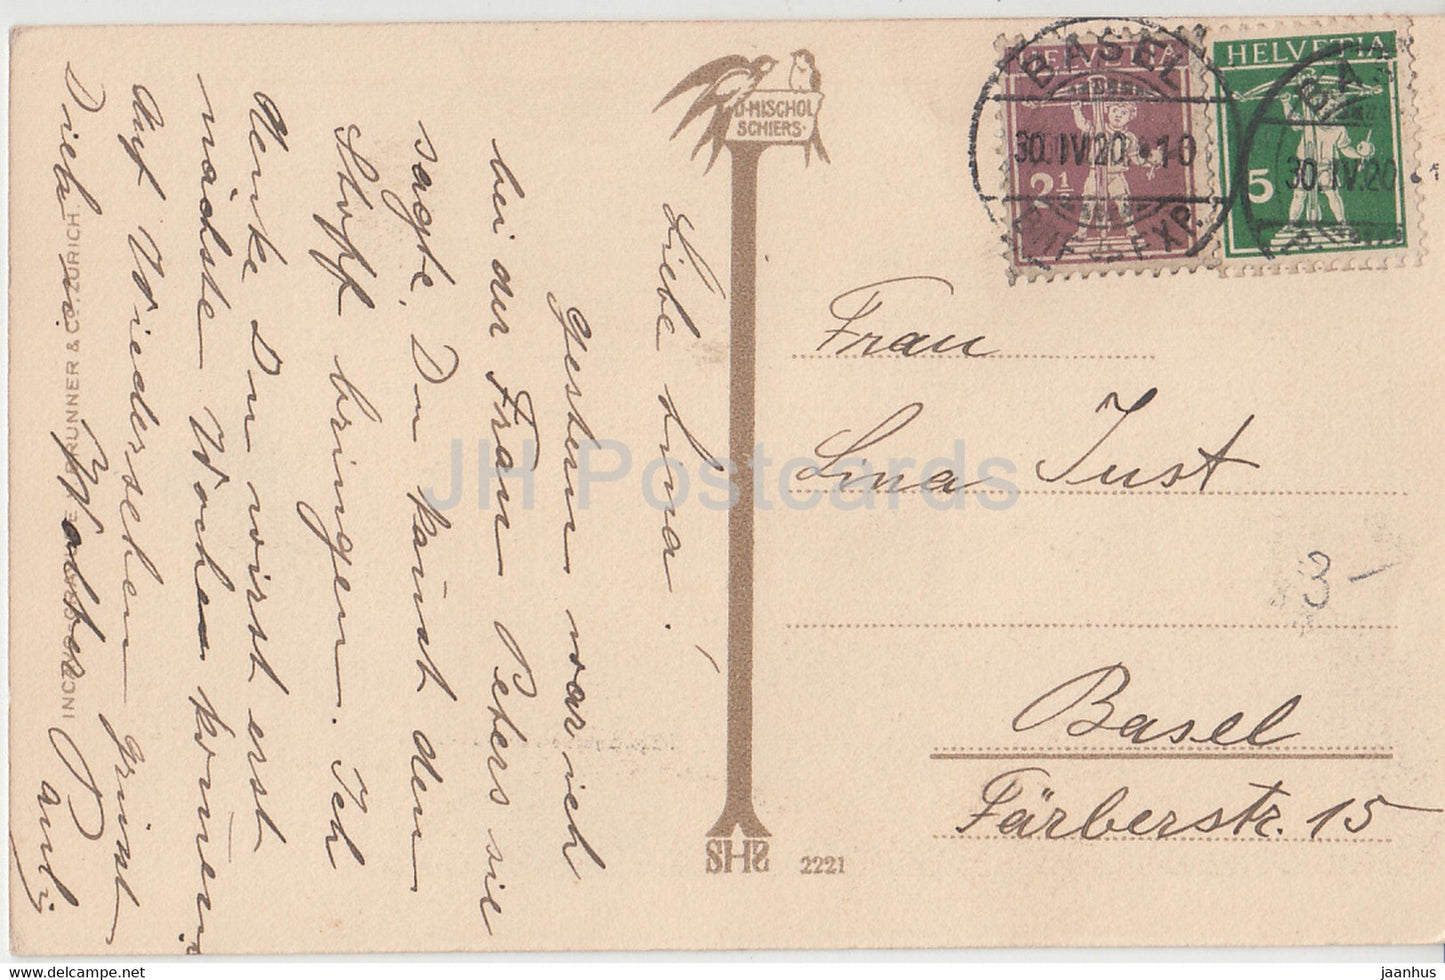 Liebe Lina!
Gestern war ich
bei der Frau Peters sie
sagte, Du kannst den
Stoff bringen. Ich
denke Du wirst erst
nächste Woche kommen
Auf Wiedersehen grüsst
Dich
Pauli
D·MISCHOL
SCHIERS·
SHS
2221
BRUNNER & CO. ZÜRICH
HELVETIA
2½
HELVETIA
5
BASEL
30.IV.20.·10
EXP.
30.IV.20
Frau
Lina Just
Basel
Färberstr. 15
3-
JH Postcards
delcampe.net
jaanhus